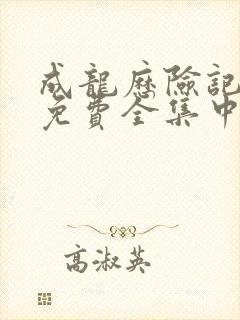 成龍歷險記
免費全集中
高淑英